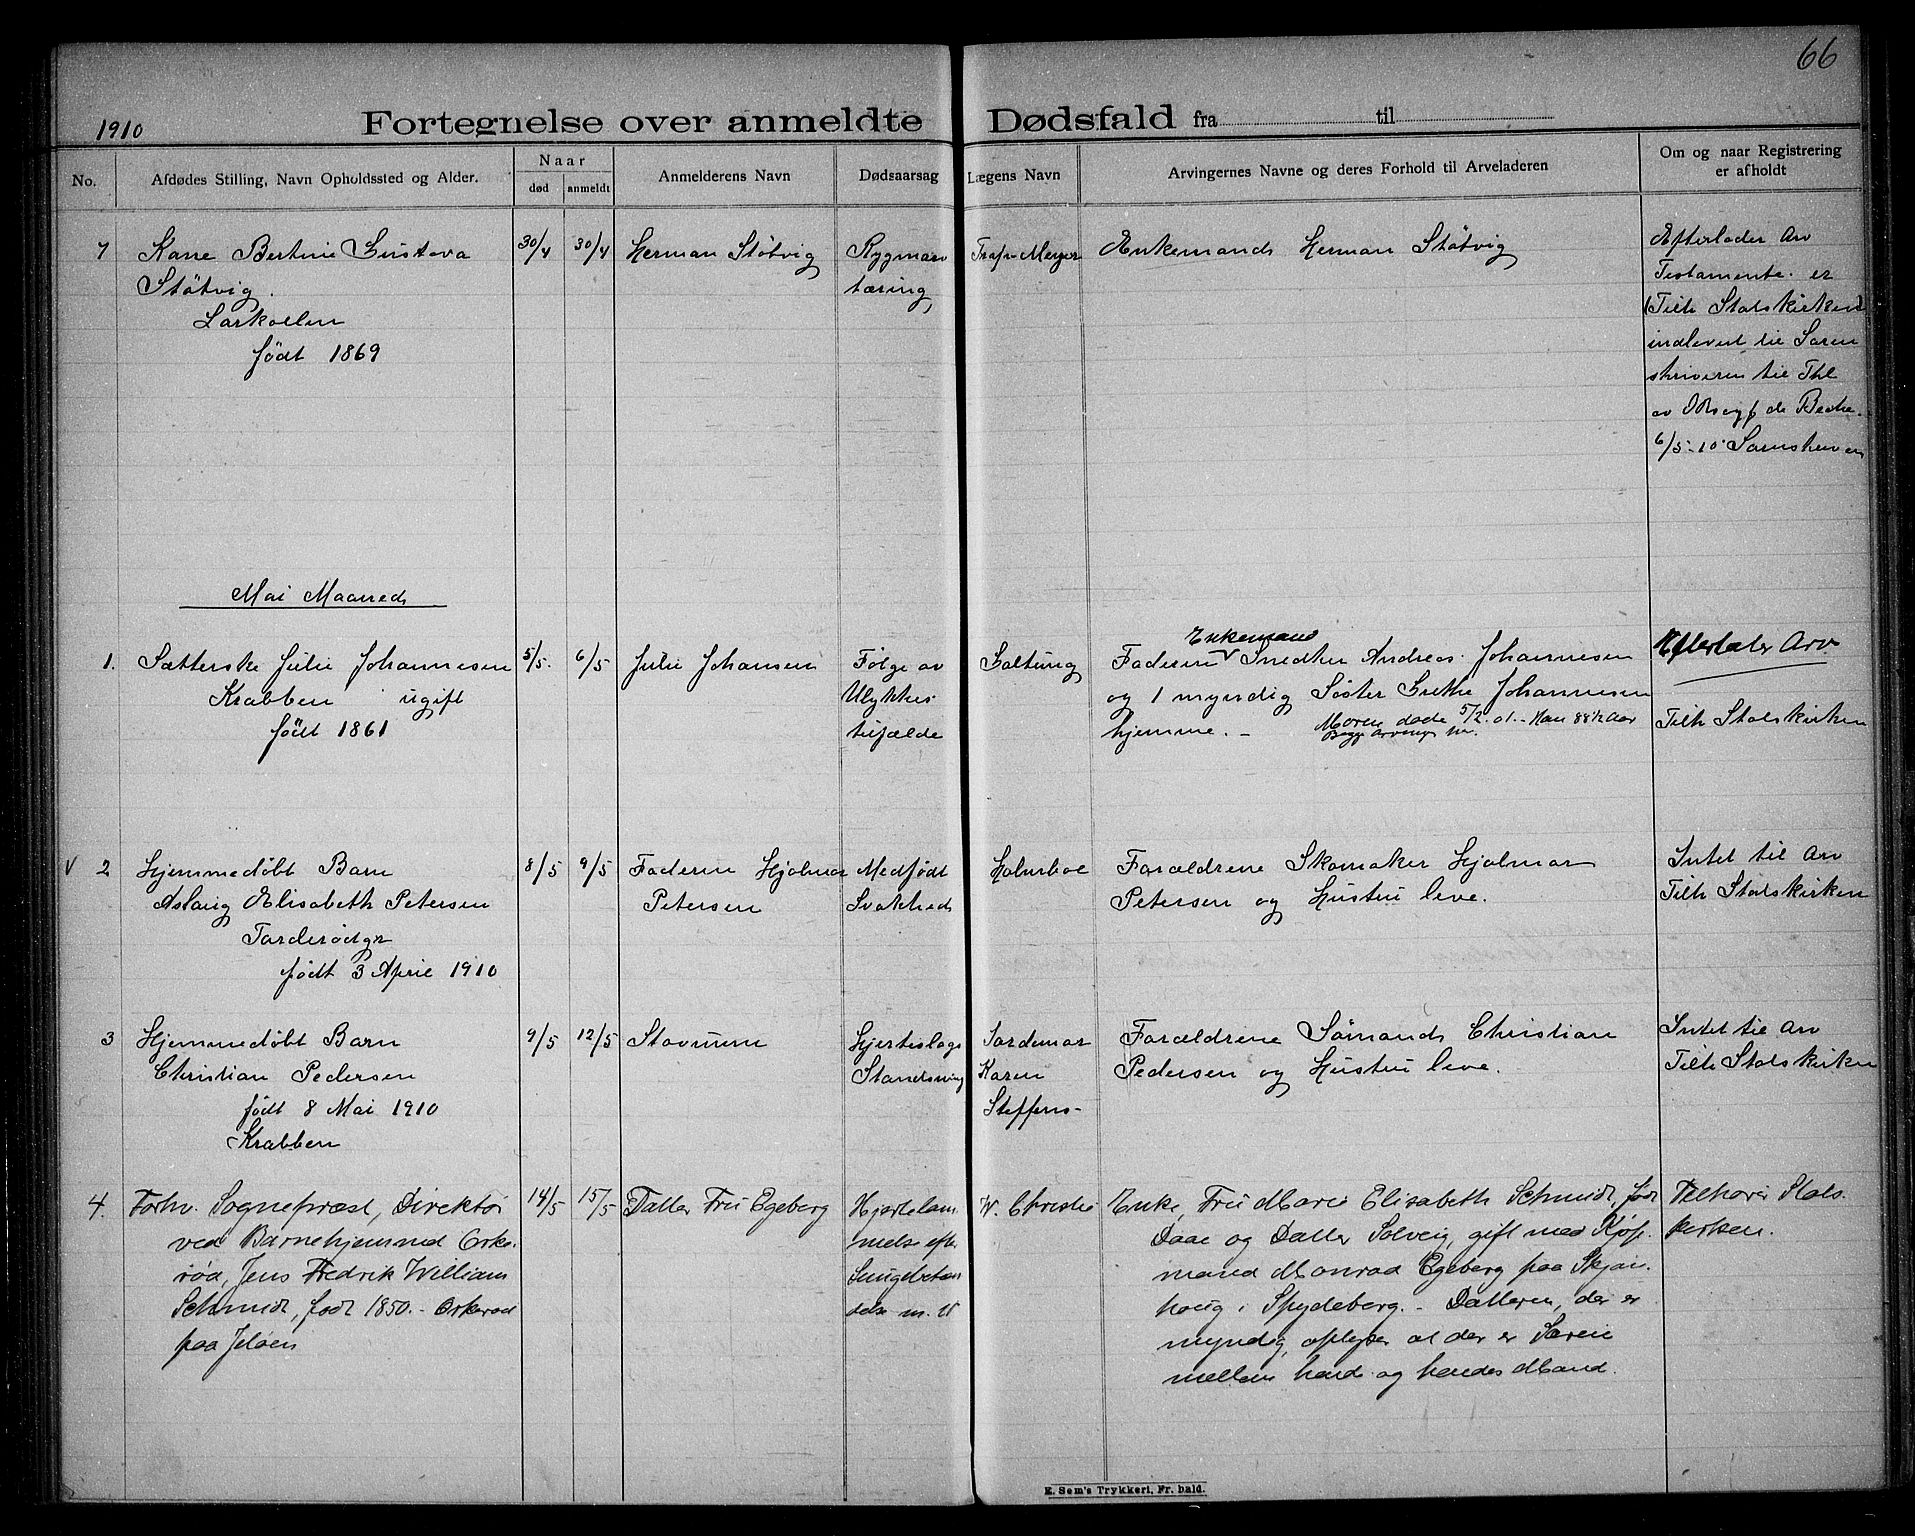 66
1910
Fortegnelse over anmeldte Dødsfald fra til
No.
Afdødes Stilling, Navn Opholdssted og Alder.
Naar
død
anmeldt
Anmelderens Navn
Dødsaarsag
Lægens Navn
Arvingernes Navne og deres Forhold til Arveladeren
Om og naar Registrering
er afholdt
7
Kone Bertine Gustava
Støtvig.
Larkollen
født 1869
30/4
30/4
Herman Støtvig
Rygmarv
tæring
Meyer
Enkemand Herman Støtvig
Efterlader Arv
Testamente er
(Tilh Statskirken)
indlevert til Soren
skriveren til Thl
av
6/5-10
Mai Maaned
1.
Sætterske Julie Johannesen
Krabben ugift
født 1861
5/5.
6/5
Julie Johansen
Følge av
Ulykkes
tilfælde
Galtung
Enkemand
Faderen Snedker Andreas Johannesen
og 1 myndig Søster Grethe Johannesen
hjemme. -
Moren døde 5/2.01. - Han 88½ Aar
Begge Arvinger
Efterlater Arv
Tilh Statskirken
V 2
Hjemmedøbt Barn
Aslaug Elisabeth Petersen
født 3 April 1910
8/5
9/5
Faderen Hjalmar
Petersen
Medfødt
Svakhed
Holmboe
Forældrene Skomaker Hjalmar
Petersen og Hustru leve.
Intet til Arv
Tilh Statskirken
3
Hjemmedøbt Barn
Christian Pedersen
født 8 Mai 1910
Krabben
9/5
12/5
Stavnum
Hjerteslags
Standsning
Jordemor
Karen
Steffens-
Forældrene Sømand Christian
Pedersen og Hustru leve.
Intet til Arv
Tilh Statskirken
4.
Forhv. Sogneprest, Direktør
ved Barnehjemmed Orke-
rød, Jens Fredrik William
Schmidt, født 1850. - Orkerød
paa Jeløen
14/5
15/5
Datter Fru Egeberg
Hjertelam
melse efter
Lungebetæn
delse m. V
W. Christie
Enke, Fru Marie Elisabeth Schmidt, født
Daae og Datter Solveig, gift med Kjøp-
mand Monrad Egeberg paa Skjøn-
houg i Spydeberg. - Datteren, der er
myndig, oplyser at der er Særeie
mellem hende og hendes Mand.
Tilhører Stats-
kirken.
E. Sem's Trykkeri, Fr. hald.